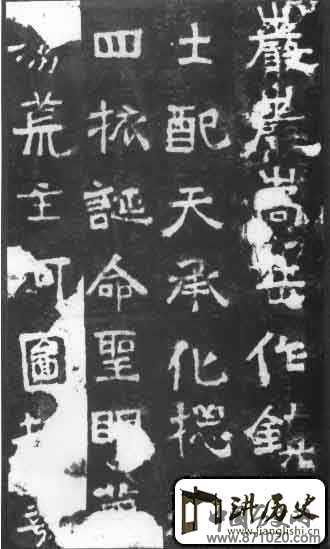 巖巖嵩岳作鎮
土配天承化揔
四誕命聖明
荒主河圖
讲历史
www.jianglishi.cn
www.871020.com